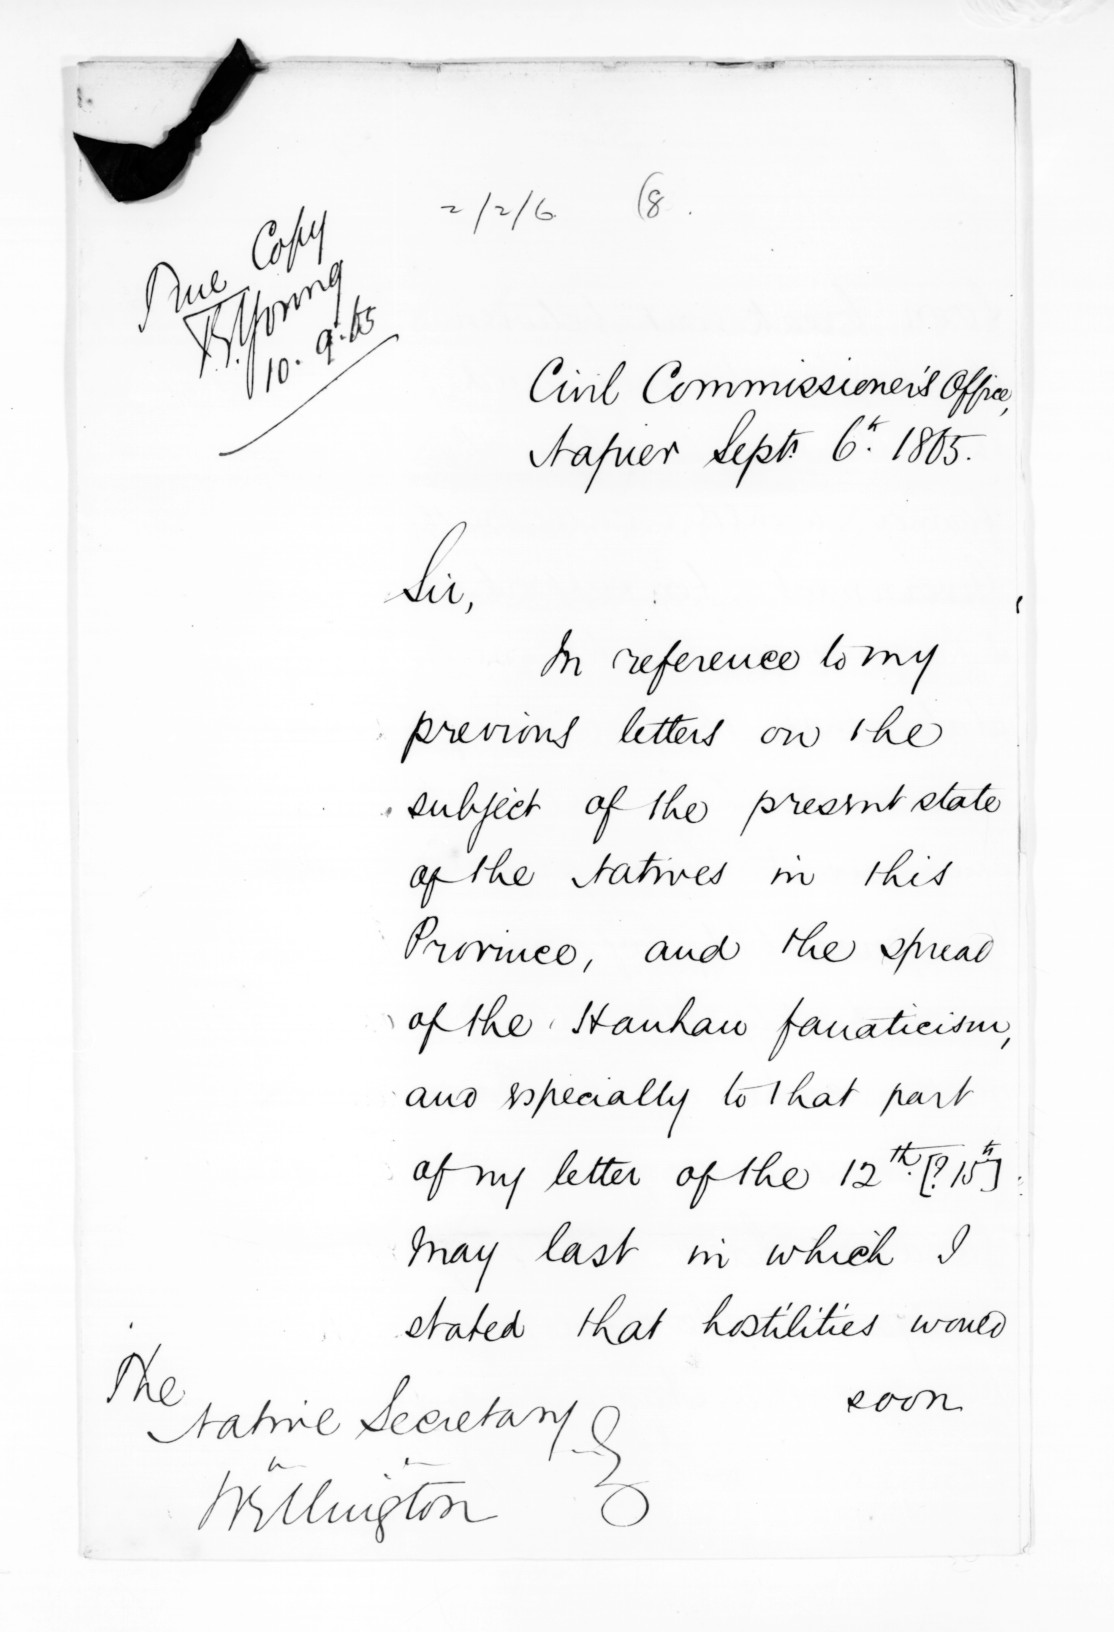 2/2/6 (8.
True Copy
B. Young
10. 9. 65
Civil Commissioner's Office,
Napier Sept. 6th. 1865.
Sir,
In reference to my
previous letters on the
subject of the present state
of the Natives in this
Province, and the spread
of the Hauhau fanaticism,
and especially to that part
of my letter of the 12th. [? 15th]
May last in which I
stated that hostilities would
soon
The
Native Secretary
" "
Wellington